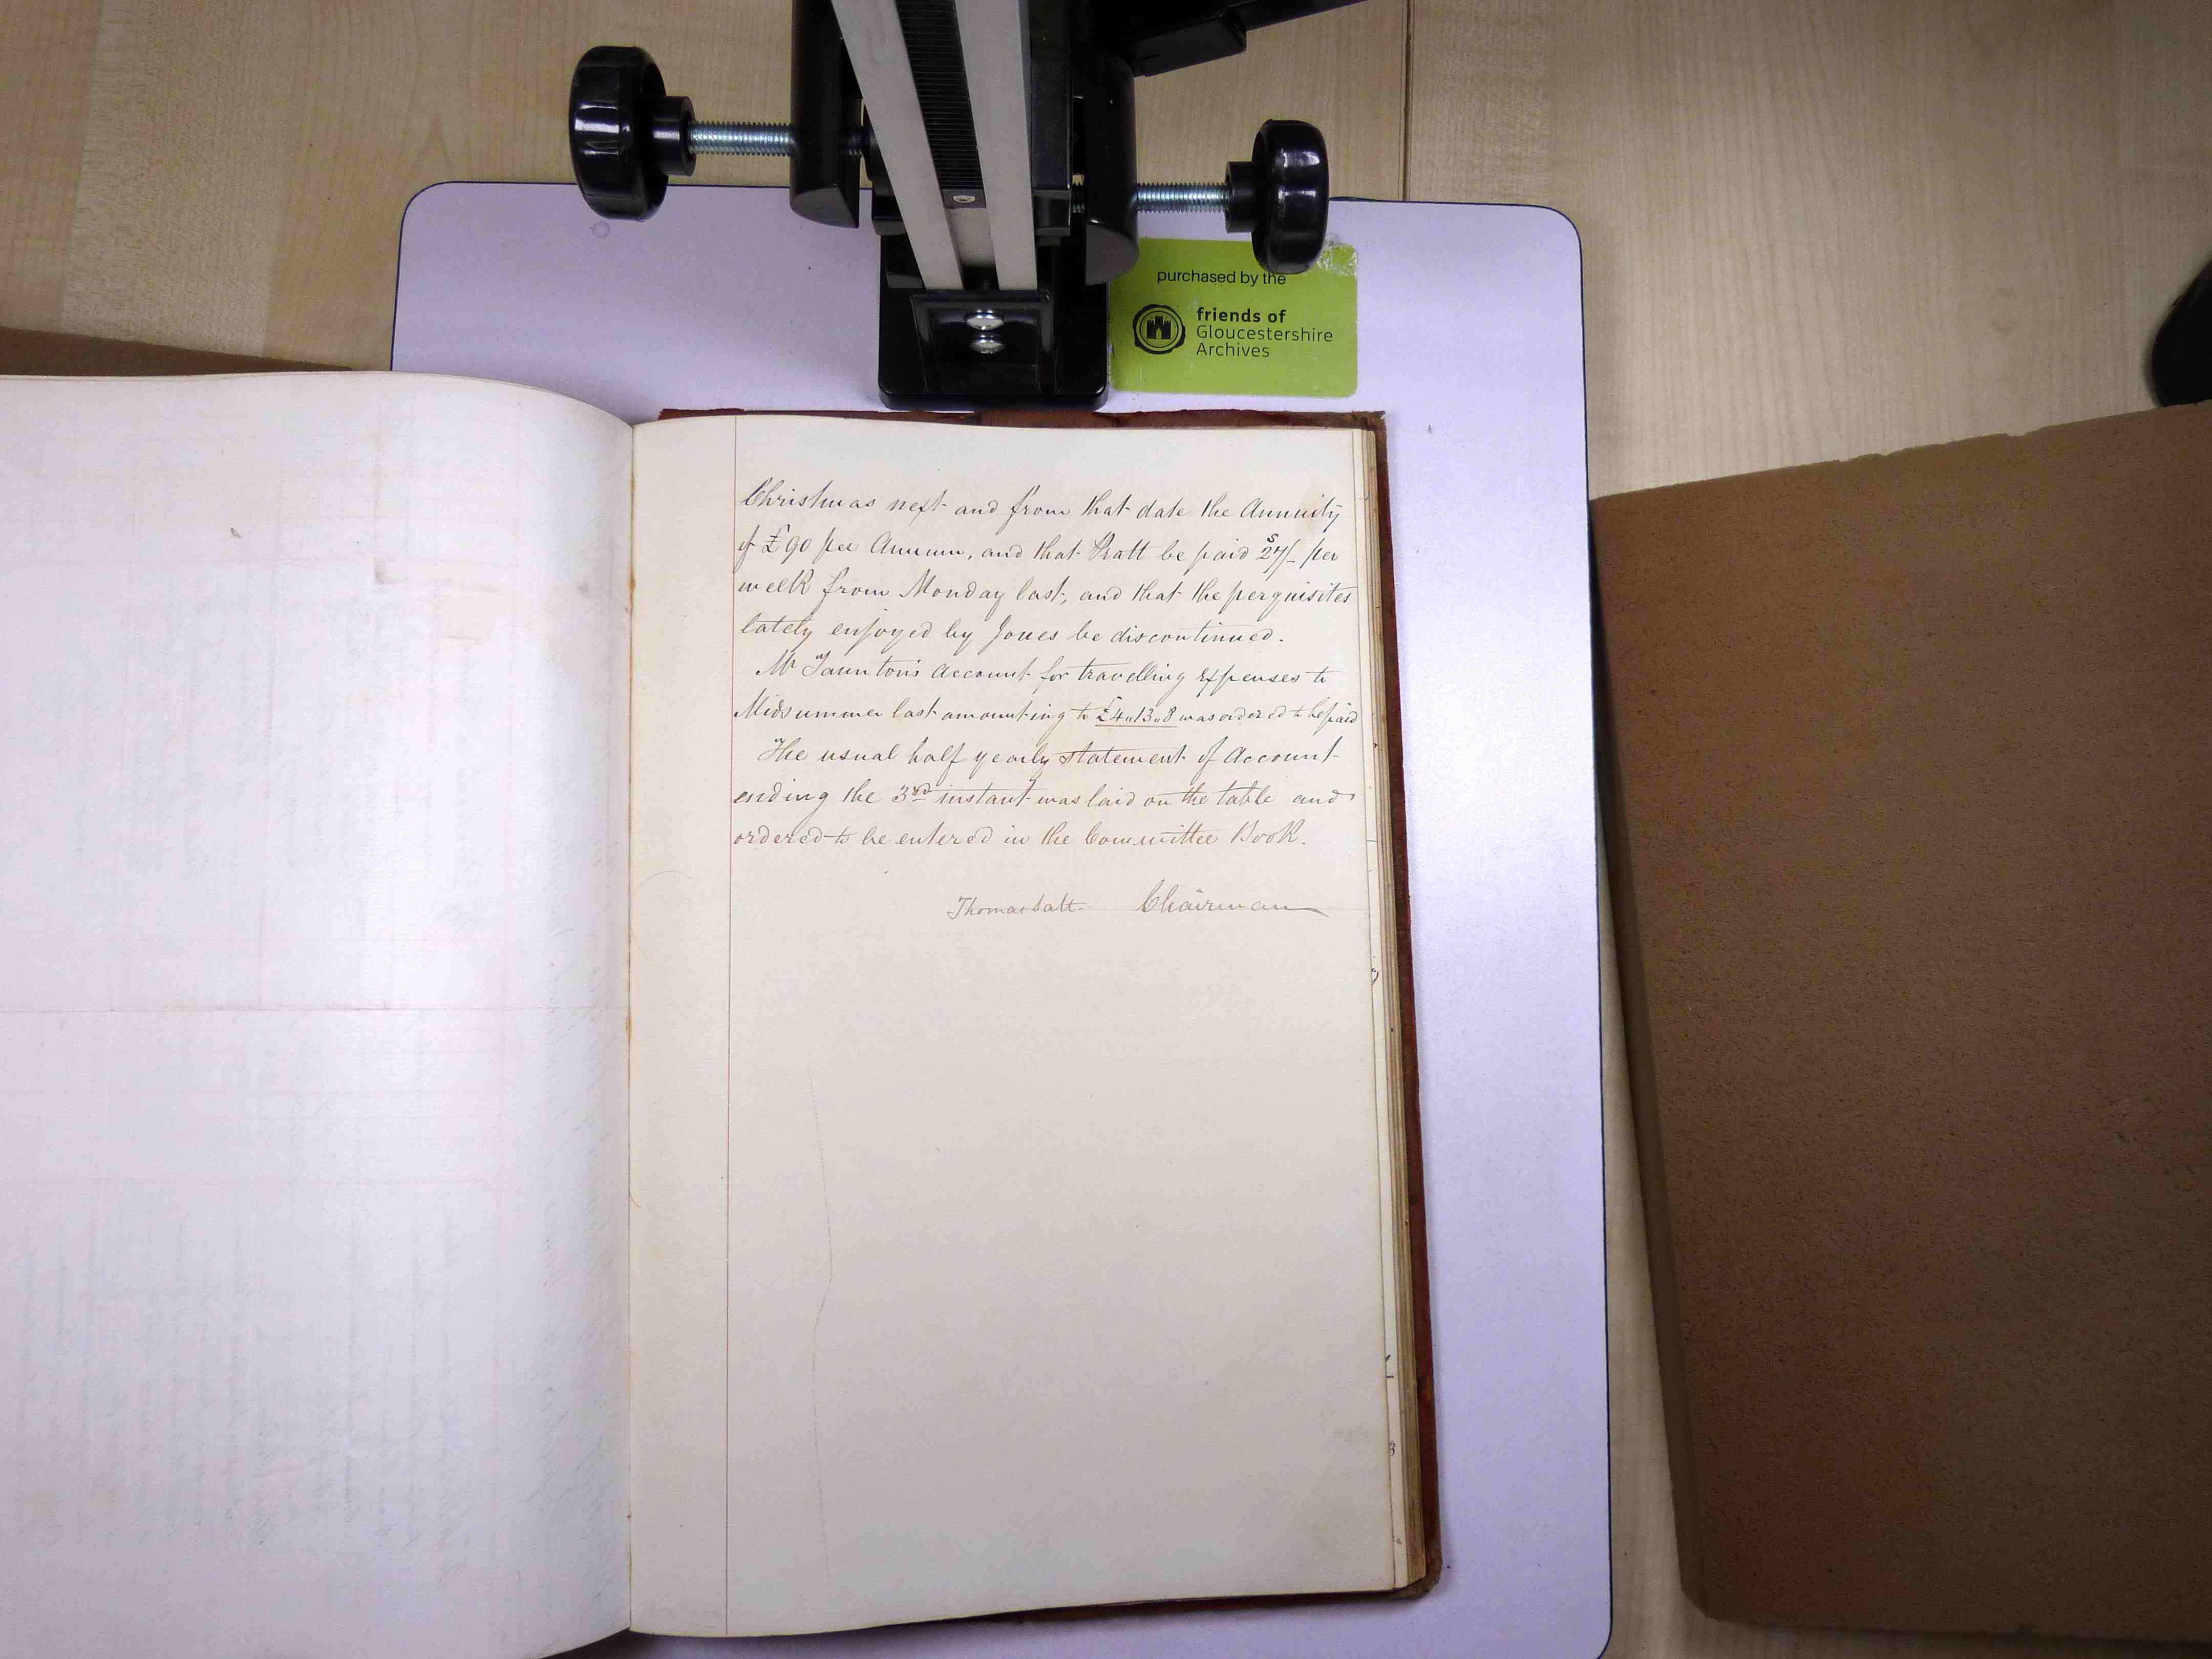 purchased by the
friends of
Gloucestershire
Archives
Christmas next and from that date the Annuity
of £90 per Annum, and that Pratt be paid 27/- per
week from Monday last, and that the perquisites
lately enjoyed by Jones be discontinued.
Mr Taunton's Account for travelling Expenses to
Midsummer last amounting to £4"13"8 was ordered to be paid
The usual half yearly statement of Account
ending the 3rd instant was laid on the table and
ordered to be entered in the Committee Book.
Thomas Salt Chairman